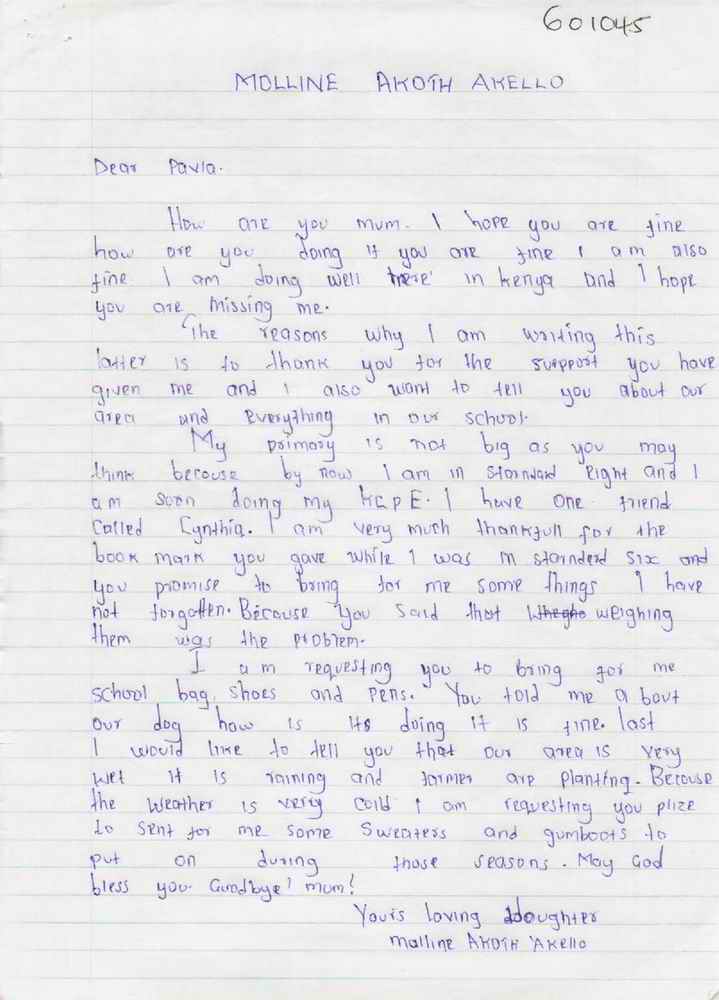 601045
MOLLINE AKOTH AKELLO
Dear Pavla.
How are you mum. I hope you are fine
how are you doing if you are fine I am also
fine I am doing well here in Kenya and I hope
you are missing me.
The reasons why I am writing this
latter is to thank you for the support you have
given me and I also want to tell you about our
area and everything in our school.
My primary is not big as you may
think becouse by now I am in starndard Eight and I
am soon doing my KCPE. I have one friend
called Cynthia. I am very much thankfull for the
book mark you gave while I was in starnderd six and
you promise to bring for me some things I have
not forgotten. Because you said that weighing
them was the problem.
I am requesting you to bring for me
school bag, shoes and pens. You told me a bout
our dog how is its doing it is fine. last
I would like to tell you that our area is very
wet it is raining and farmer are planting. Becouse
the weather is very cold I am requesting you plize
to sent for me some sweaters and gumboots to
put on during those seasons. May God
bless you. Goodbye! mum!
Yours loving doughter
Malline AKOTH AKello